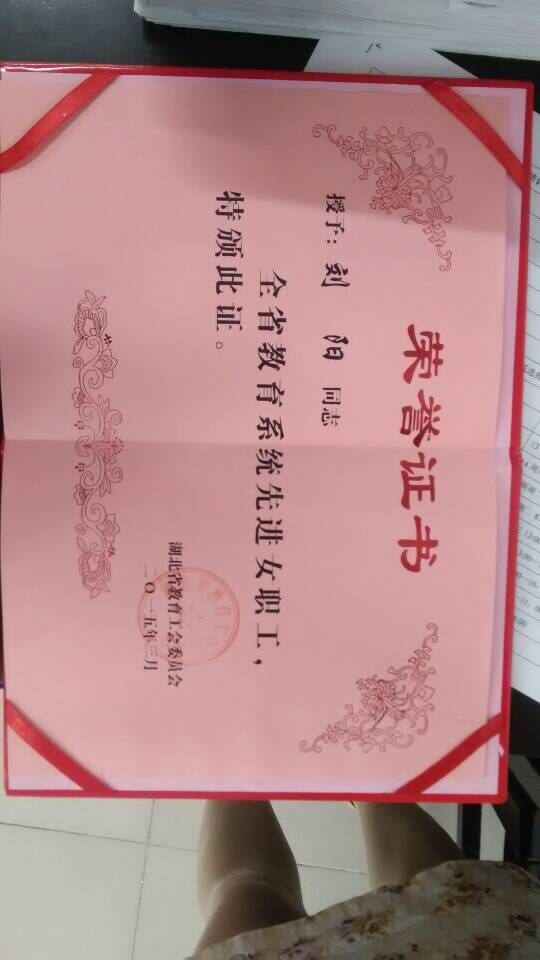 荣誉证书
授予：刘阳 同志
全省教育系统先进女职工，
特颁此证。
湖北省教育工会委员会
二〇一五年三月